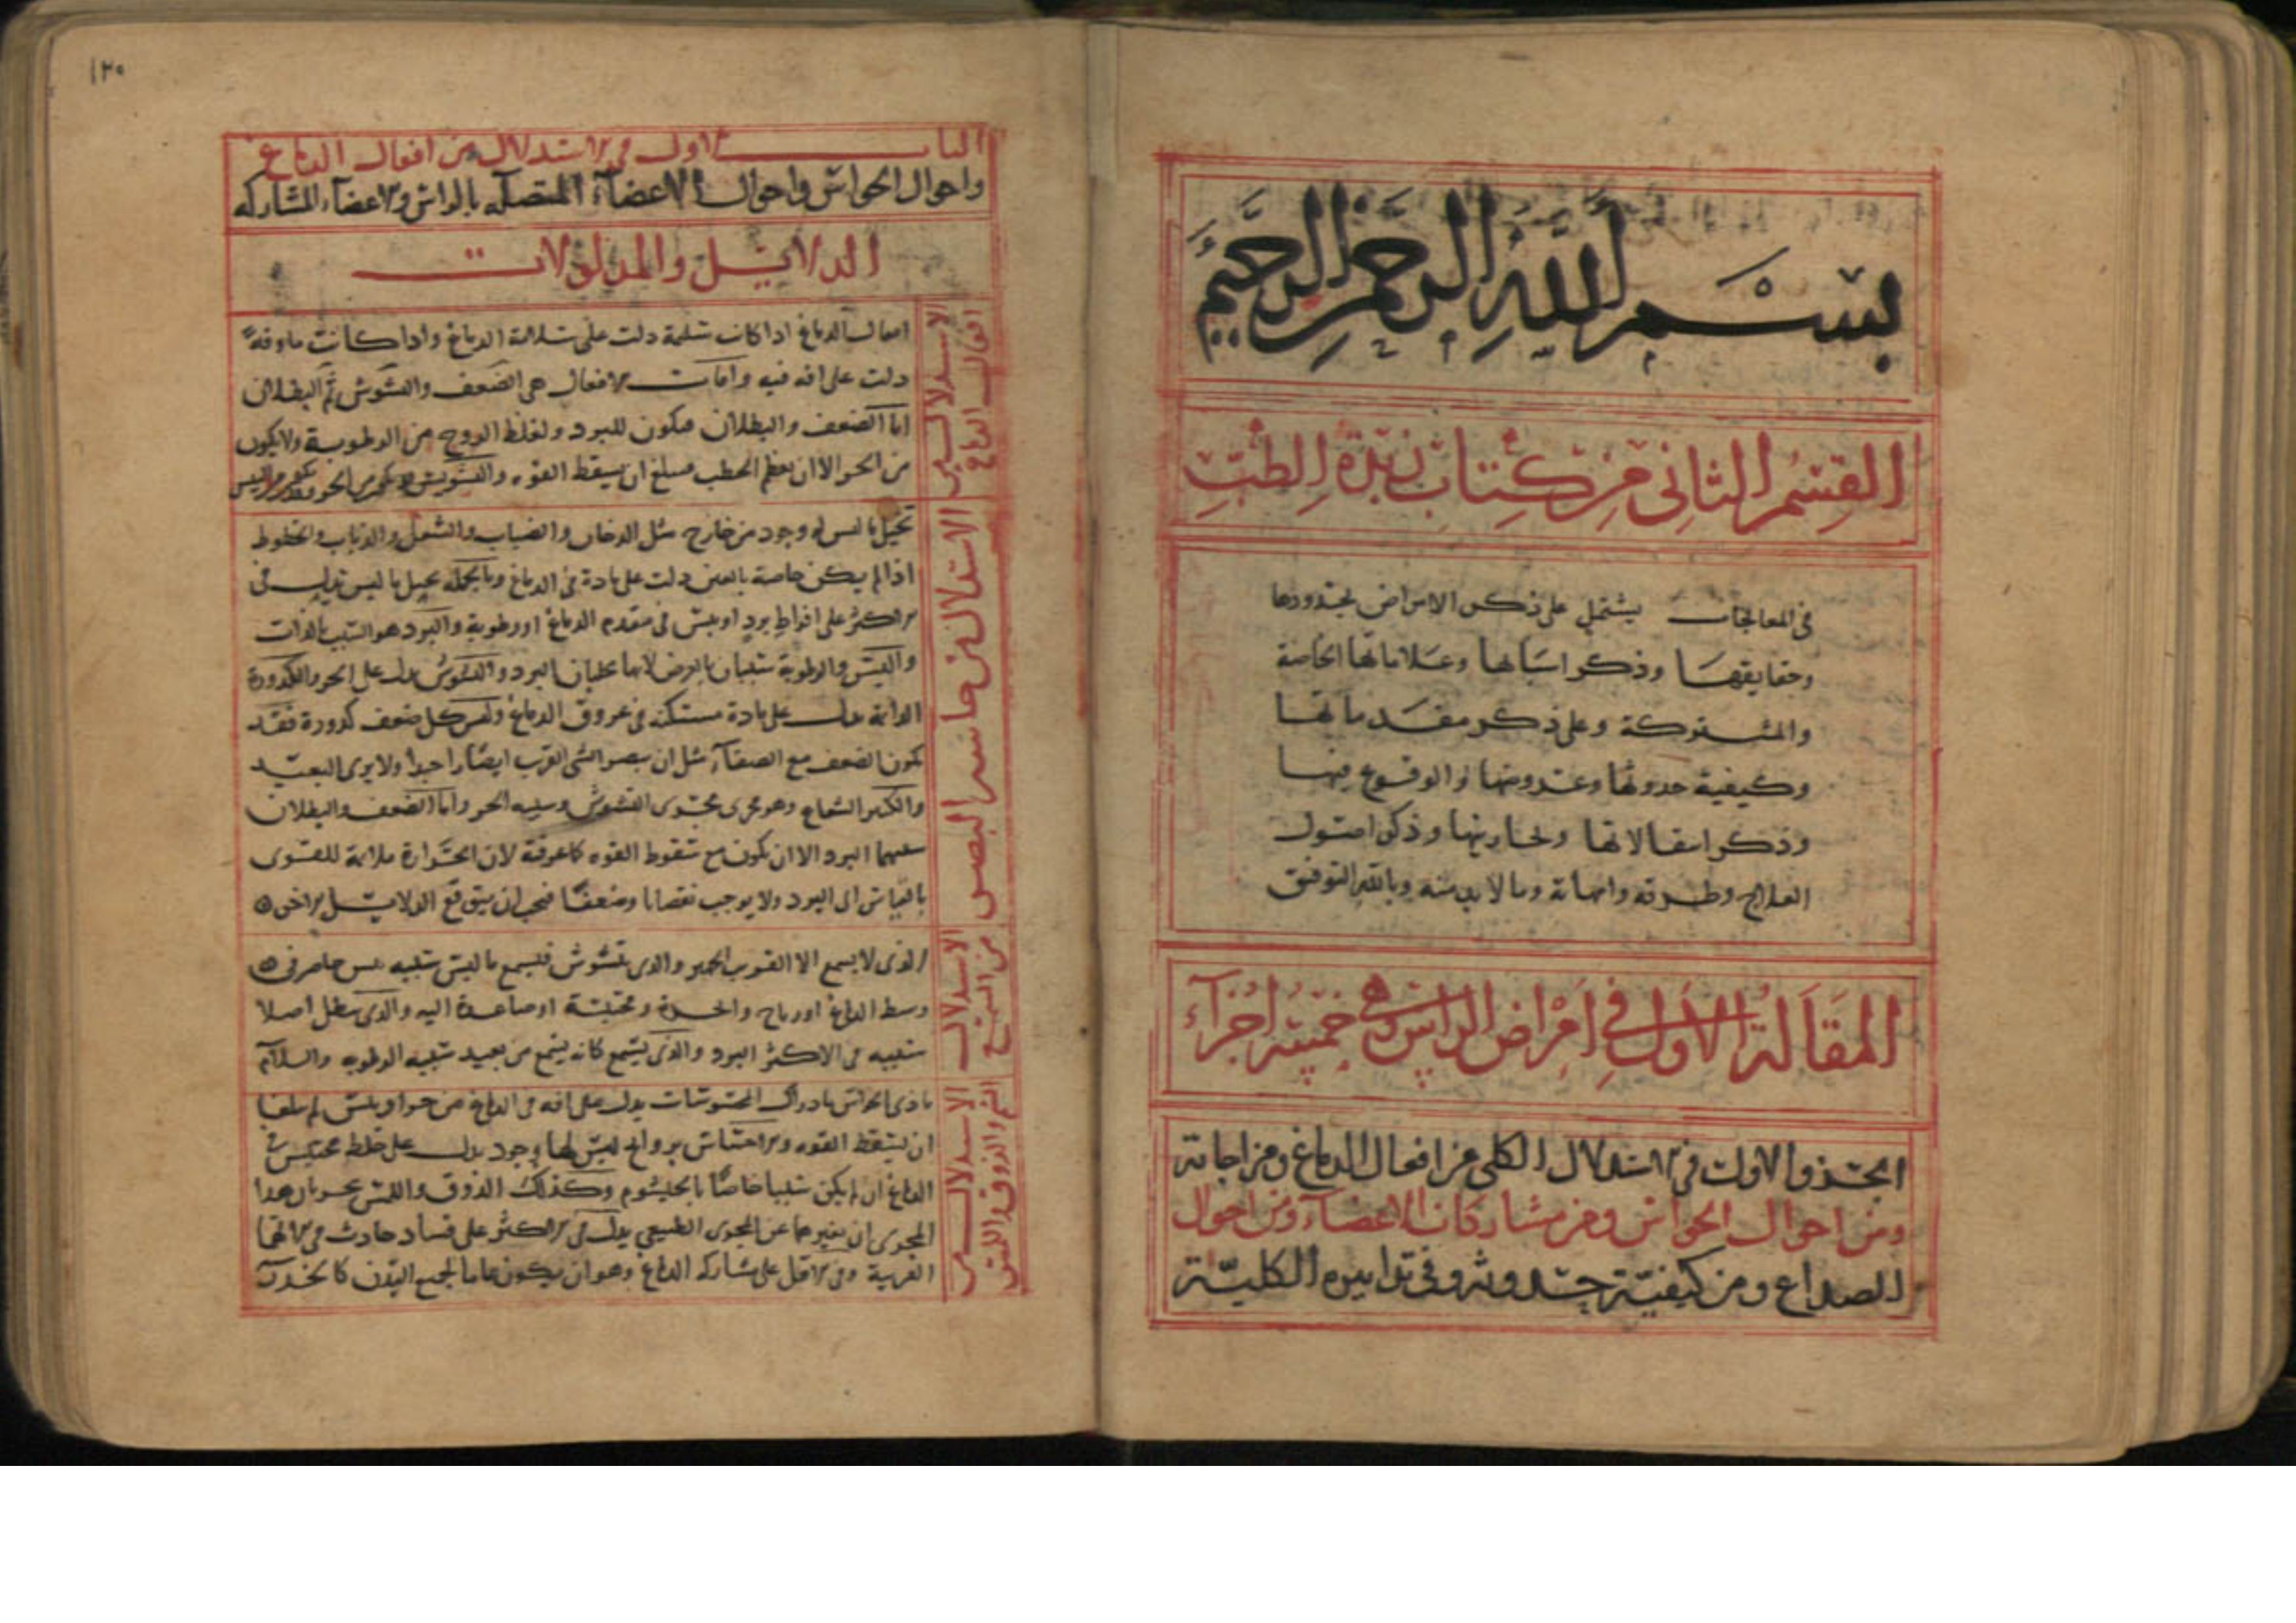 بسم الله الرحمن الرحيم
القسم الثاني من كتاب زبدة الطب
في المعالجات يشتمل على ذكر الامراض بحدودها
وحقايقها وذكر اسبابها وعلاماتها الخاصة
والمشتركة وعلى ذكر مقدماتها
وكيفية حدوثها وعروضها والوقوع فيها
وذكر انتقالاتها وذكر اصول
العلاج وطرقه وما لابد منه وبالله التوفيق
المقالة الاولى في امراض الراس وهي خمسة اجزآء
الجزو الاول في الاستدلال الكلي من افعال الدماغ ومزاجاته
ومن احوال الحواس ومن مشاركات الاعضآء ومن احوال
الصداع ومن كيفية حدوثه وفي تدابيره الكلية
١٢٠
الباب الاول في الاستدلال من افعال الدماغ
واحوال الحواس واحوال الاعضآء المتصلة بالراس والاعضآء المشاركة
الدلايل والمدلولات
الاستدلال من
افعال الدماغ
افعال الدماغ اذا كانت سليمة دلت على سلامة الدماغ واذا كانت ماوفة
دلت على افة فيه وافات الافعال هي الضعف والتشوش ثم البطلان
اما الضعف والبطلان فيكون للبرد ولغلظ الروح من الرطوبة ولا يكون
من الحر الا ان يعظم الخطب فيبلغ ان يسقط القوه والتشويش
الاستدلال من حاسة البصر
تخيل ما ليس له وجود من خارج مثل الدخان والضباب والشعل والذباب والخطوط
اذا لم يكن خاصة بالعين دلت على مادة في الدماغ وبالجملة تخيل ما ليس يدل في
الاكثر على افراط برد او يبس في مقدم الدماغ او رطوبة والبرد هو السبب بالذات
واليبس والرطوبة سببان بالعرض لانهما يجلبان البرد والتشوش يدل على الحر والكدورة
الدائمة يدل على مادة مستكنة في عروق الدماغ وليس كل ضعف كدورة فقد
يكون الضعف مع الصفآء مثل ان يبصر الشي القريب ايضا جيدا ولا يرى البعيد
والكثير الشعاع وهو يجرى مجرى التشوش وسببه الحر واما الضعف والبطلان
سببهما البرد الا ان يكون مع سقوط القوه كما عرفته لان الحرارة ملائمة للقوى
بالقياس الى البرد ولا يوجب نقصانا وضعفا فيجب ان يتوقع الدلايل الاخر
الاستدلال
من السمع
الذي لا يسمع الا القريب الجهير والذي يتشوش فيسمع ما ليس سببه يبس حاصر في
وسط الدماغ او رياح محتبسة او صاعدة اليه والذي يبطل اصلا
سببه في الاكثر البرد والذي يسمع كانه يسمع من بعيد سببه الرطوبه والسلام
الاستدلال من
الشم والذوق واللمس
تاذي الحواس بادراك المحسوسات يدل على افه في الدماغ من حر او يبس لم يبلغا
ان يسقط القوه والاحساس بروايح ليس لها وجود يدل على خلط محتبس في
الدماغ ان لم يكن سببا خاصا بالخيشوم وكذلك الذوق واللمس يجريان هذا
المجرى ان تغيرهما عن المجرى الطبيعي يدل في الاكثر على فساد حادث في الاتها
القريبة وفي الاقل على مشاركه الدماغ وهو ان يكون عاما لجميع البدن كالخدر